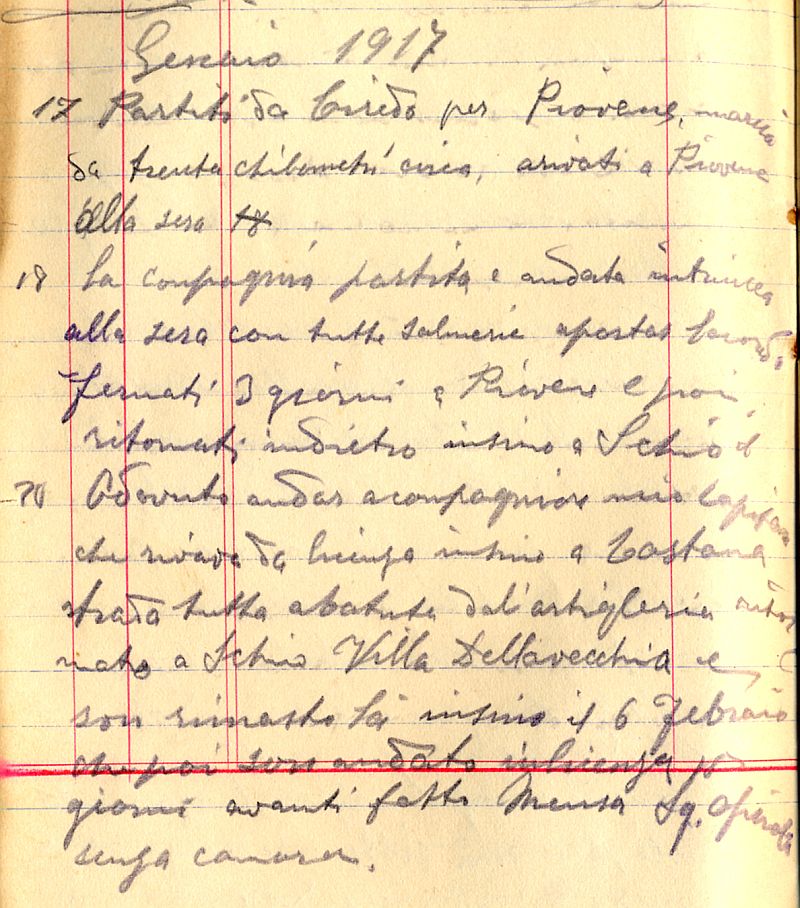 Genaio 1917
17 Partiti da Ciredo per Piovene, marcia
da trenta chilometri circa, arivati a Piovene
alla sera 18
18 La conpagnia partita e andata in trincea
alla sera con tutte salmerie
fermati 3 giorni a Piovene e poi
ritornati indietro insino a Schio
Odovuto andar aconpagniare mio
che rivava da licenza insino a Costana
strada tutta abatuta dal'artiglieria ritor
nato a Schio Villa Dellavecchia e
son rimasto là insino il 6 Febraio
che poi son andato in licenza
giorni avanti fatto Mensa Sq.
senza